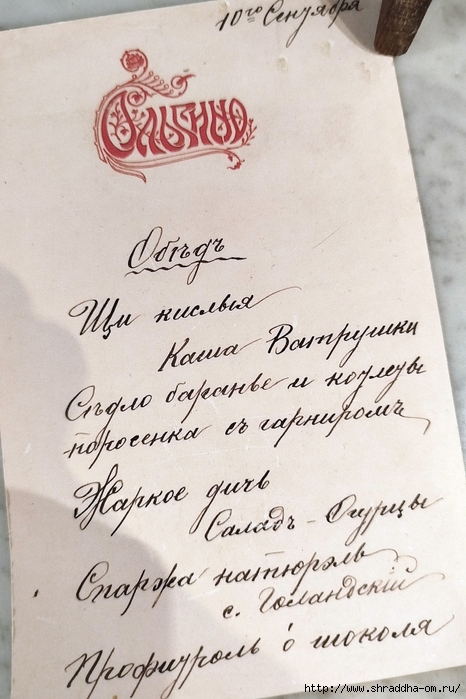 10го Сентября
Ольгино
Обѣдъ
Щи кислыя
Каша Ватрушки
Сѣдло баранье и котлеты
поросенка съ гарниромъ
Жаркое дичь
Саладъ - Огурцы
Спаржа натюрэль
с. Голандскій
Профитроль о шоколя
http://www.shraddha-om.ru/